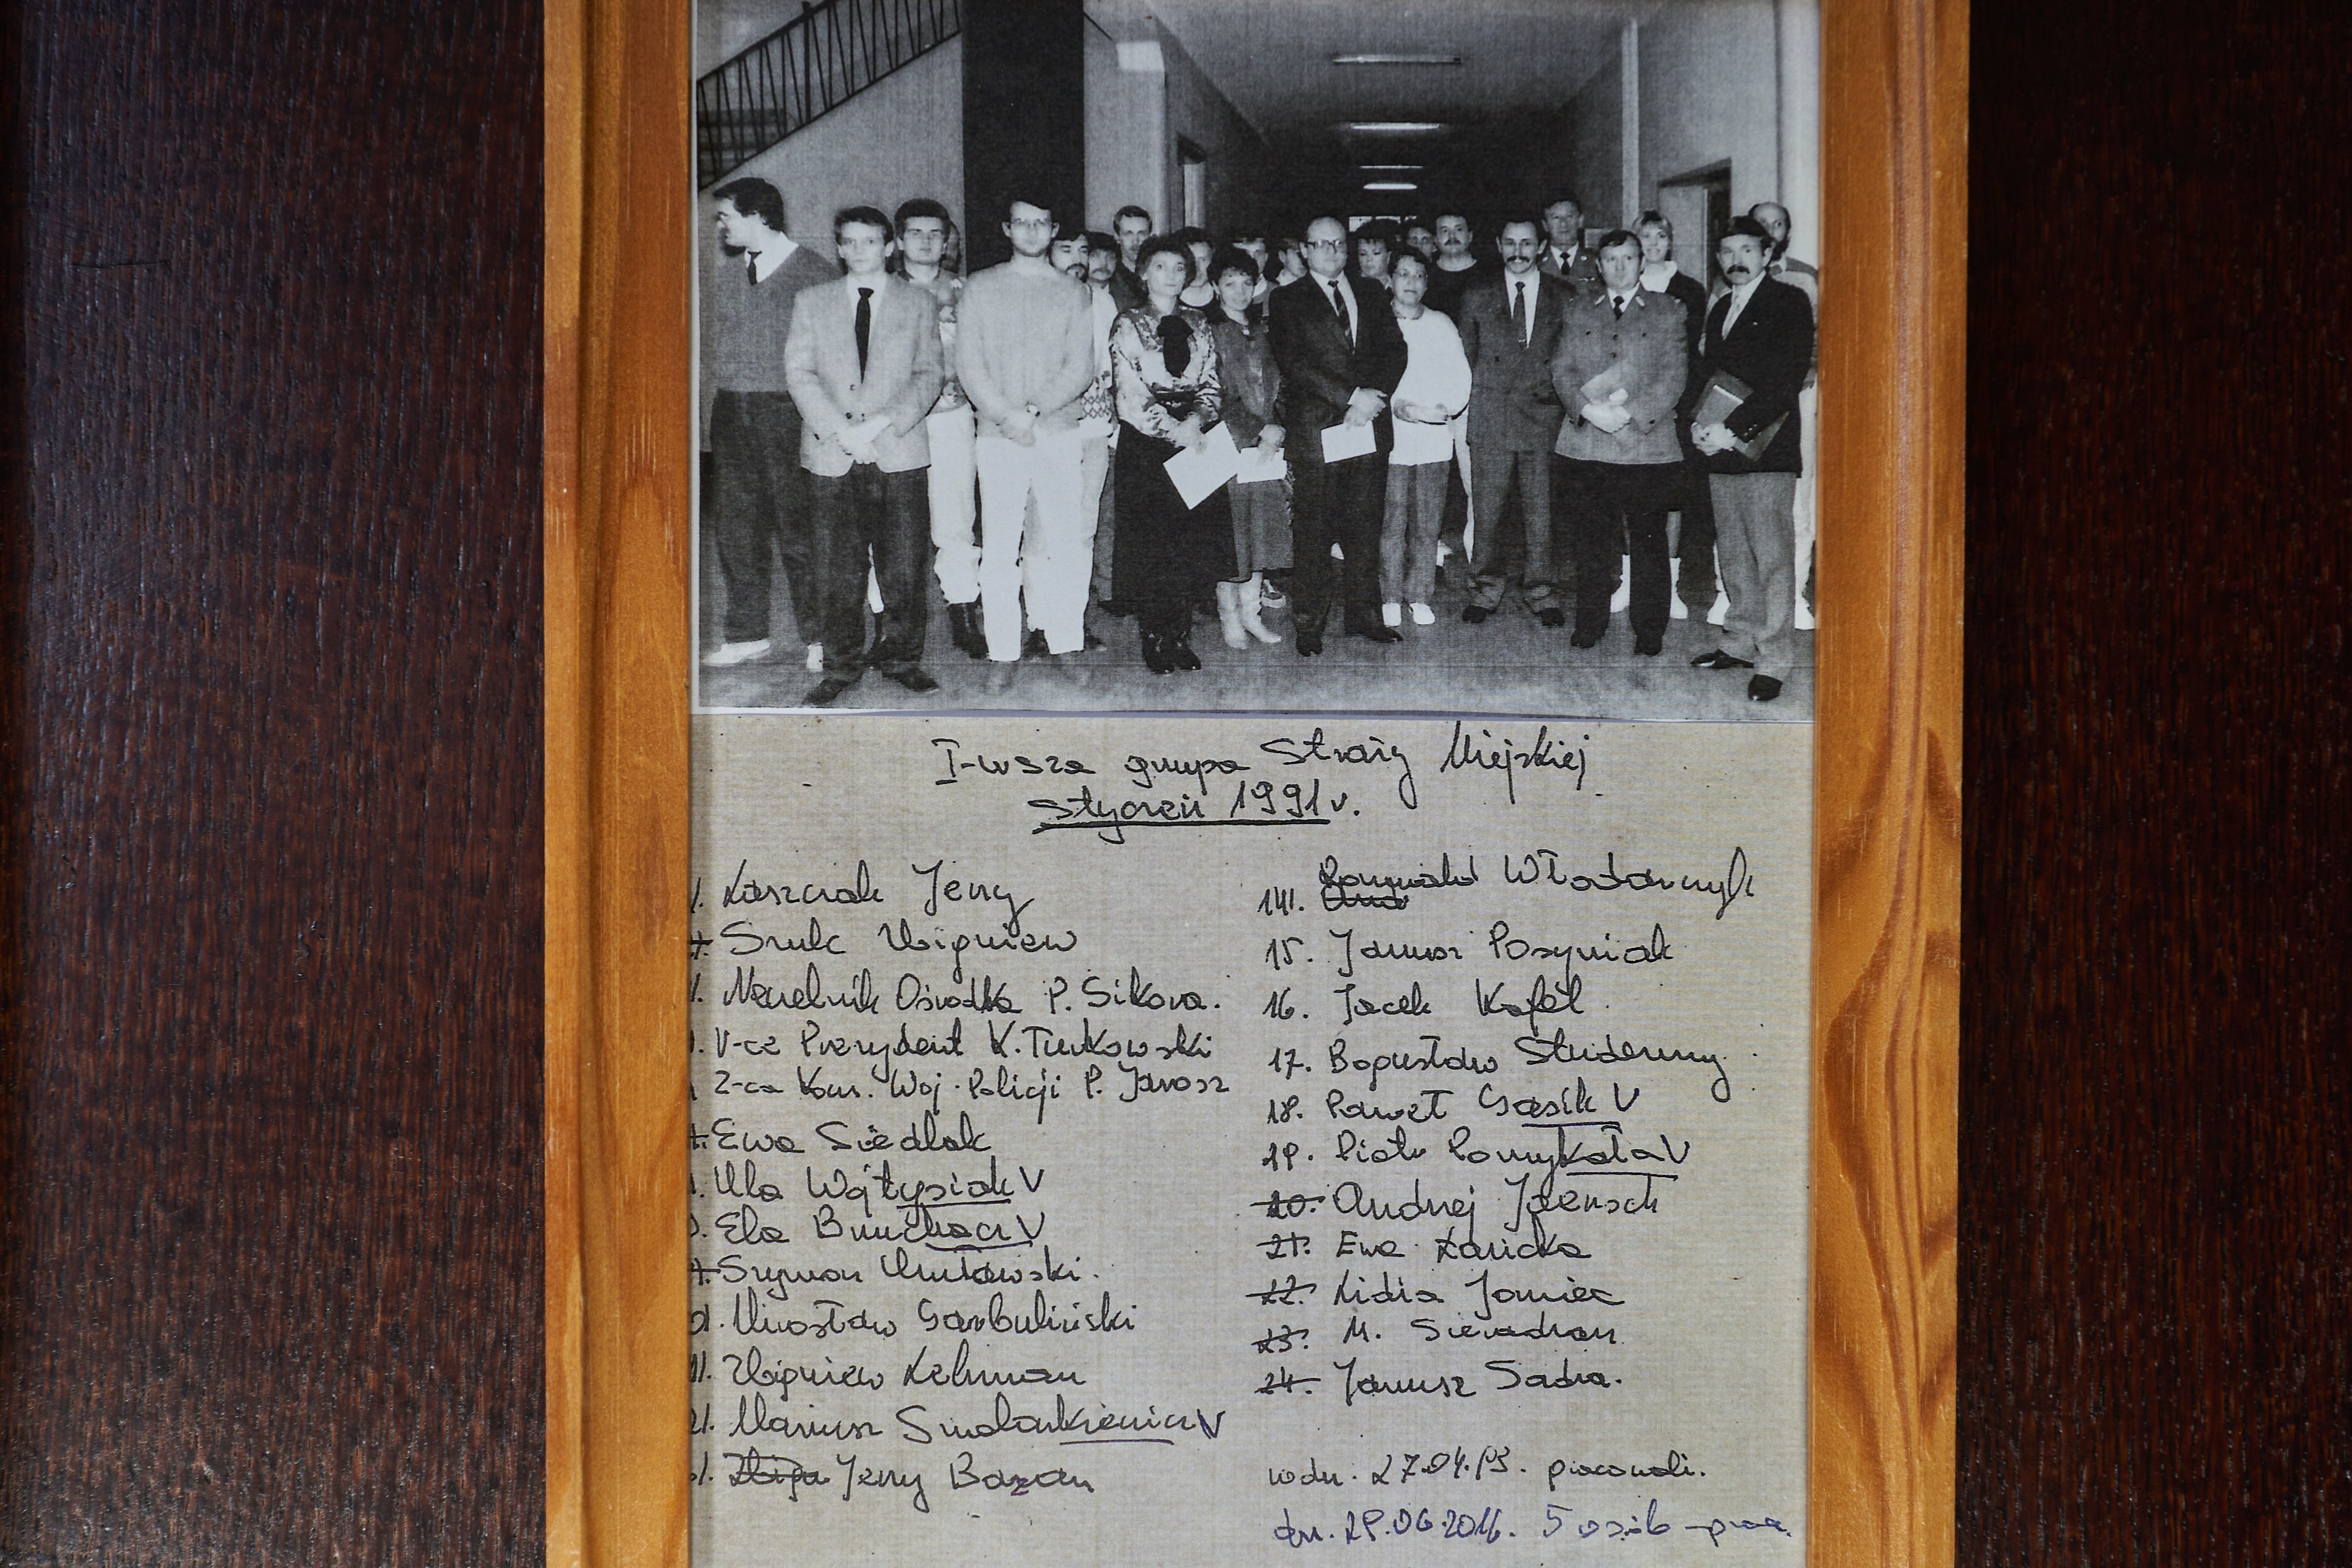 I-wsza grupa Straży Miejskiej
styczeń 1991 r.
1. Kaszczak Jerzy
Szulc Zbigniew
Naczelnik Ośrodka P. Sikora.
V-ce Prezydent K. Turkowski
Z-ca Kom. Woj. Policji P. Jarosz
Ewa Siedlak
Ula Wojtysiak V
Ela V
Szymon
Mirosław Garbuliński
11. Zbigniew Lehman
Mariusz V
Jerzy Bazan
14. Romuald Włodarczyk
15. Janusz Posyniak
16. Jacek Kafel
17. Bogusław Studenny
18. Paweł Gąsik V
19. Piotr Pomykała V
20. Andrzej
21. Ewa Zaricka
22. Lidia Janiec
23. M. Sieradzan
24. Janusz Sadza.
w dn. 27.04. pracowali.
dn. 29.06.2016. 5 osób